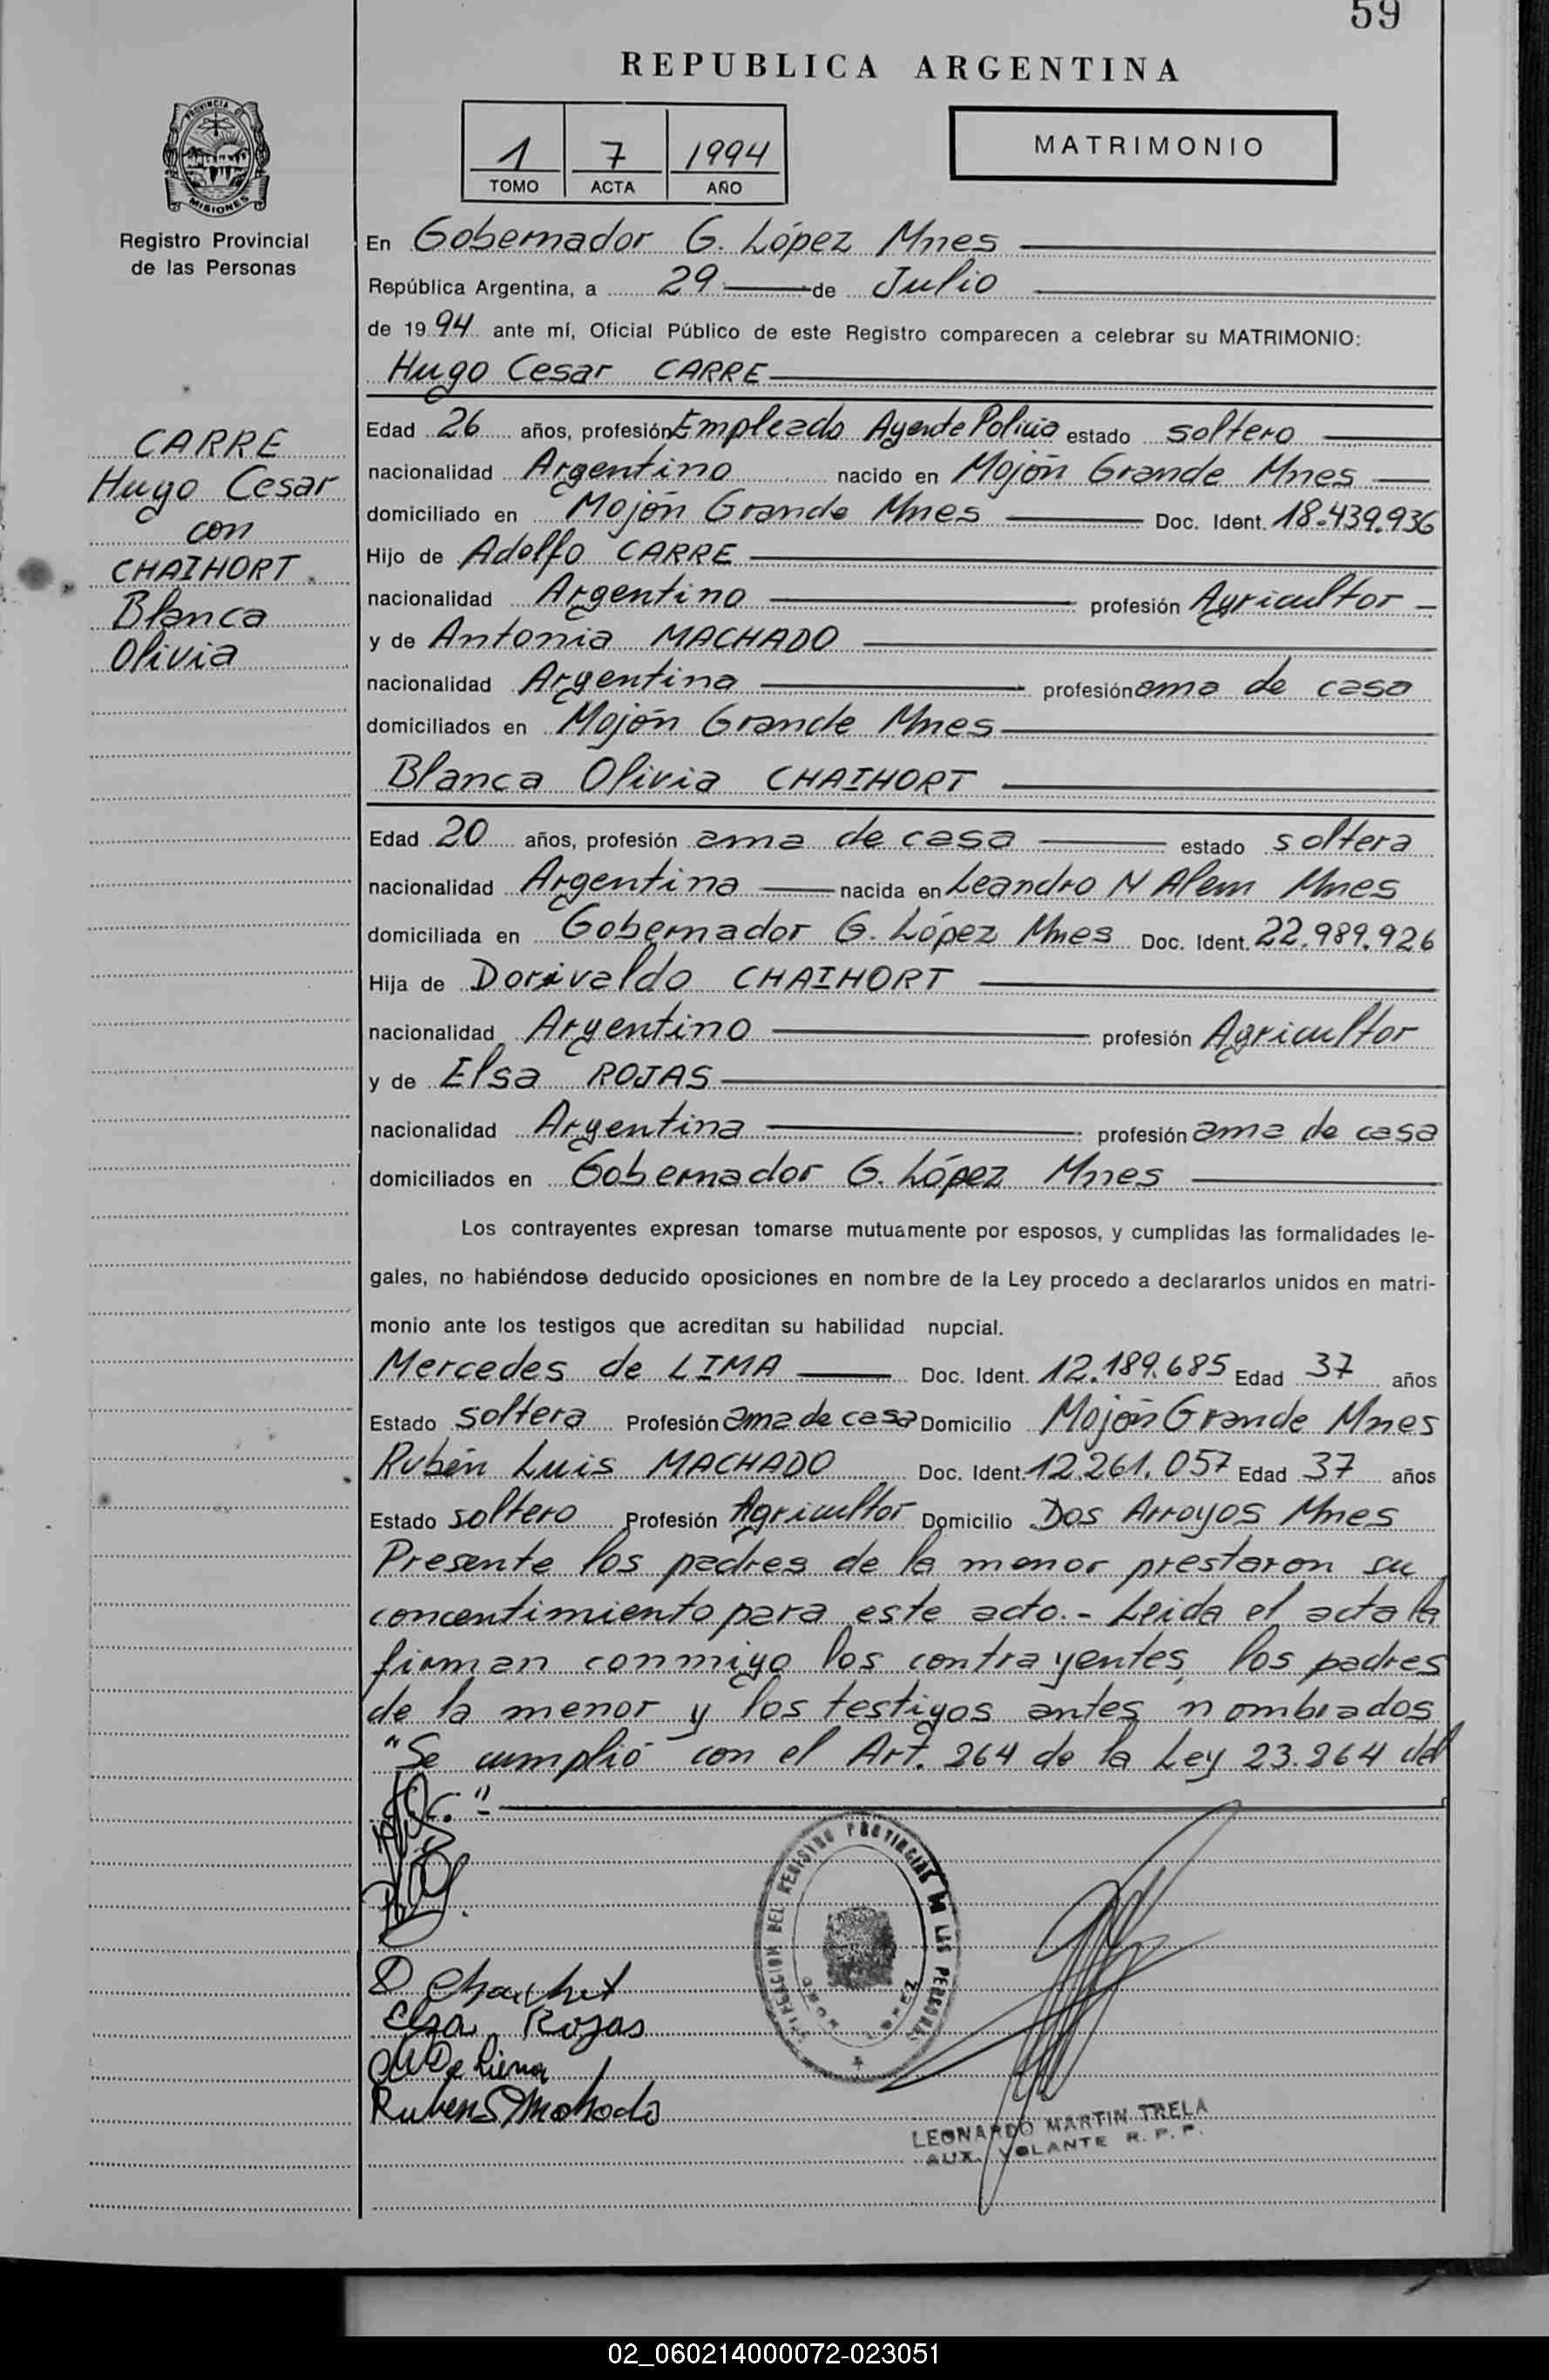 59
REPUBLICA ARGENTINA
1 7 1994
TOMO ACTA AÑO
MATRIMONIO
PROVINCIA DE
MISIONES
Registro Provincial
de las Personas
CARRE
Hugo Cesar
con
CHAIHORT
Blanca
Olivia
En Gobernador G. López Mnes
República Argentina, a 29 de Julio
de 1994 ante mí, Oficial Público de este Registro comparecen a celebrar su MATRIMONIO:
Hugo Cesar CARRE
Edad 26 años, profesión Empleado Agente Policia estado soltero
nacionalidad Argentino nacido en Mojón Grande Mnes
domiciliado en Mojón Grande Mnes Doc. Ident. 18.439.936
Hijo de Adolfo CARRE
nacionalidad Argentino profesión Agricultor
y de Antonia MACHADO
nacionalidad Argentina profesión ama de casa
domiciliados en Mojón Grande Mnes
Blanca Olivia CHAIHORT
Edad 20 años, profesión ama de casa estado soltera
nacionalidad Argentina nacida en Leandro N Alem Mnes
domiciliada en Gobernador G. López Mnes Doc. Ident. 22.989.926
Hija de Dorivaldo CHAIHORT
nacionalidad Argentino profesión Agricultor
y de Elsa ROJAS
nacionalidad Argentina profesión ama de casa
domiciliados en Gobernador G. López Mnes
Los contrayentes expresan tomarse mutuamente por esposos, y cumplidas las formalidades le-
gales, no habiéndose deducido oposiciones en nombre de la Ley procedo a declararlos unidos en matri-
monio ante los testigos que acreditan su habilidad nupcial.
Mercedes de LIMA Doc. Ident. 12.189.685 Edad 37 años
Estado soltera Profesión ama de casa Domicilio Mojón Grande Mnes
Rubén Luis MACHADO Doc. Ident. 12.261.057 Edad 37 años
Estado soltero Profesión Agricultor Domicilio Dos Arroyos Mnes
Presente los padres de la menor prestaron su
concentimiento para este acto.- Leida el acta la
firman conmigo los contrayentes, los padres
de la menor y los testigos antes nombrados
"Se cumplió con el Art. 264 de la Ley 23.264 del
C."-
REGISTRO PROVINCIAL DE LAS PERSONAS
Elsa Rojas
De Lima
LEONARDO MARTIN TRELA
AUX. VOLANTE R. P. P.
02_060214000072-023051